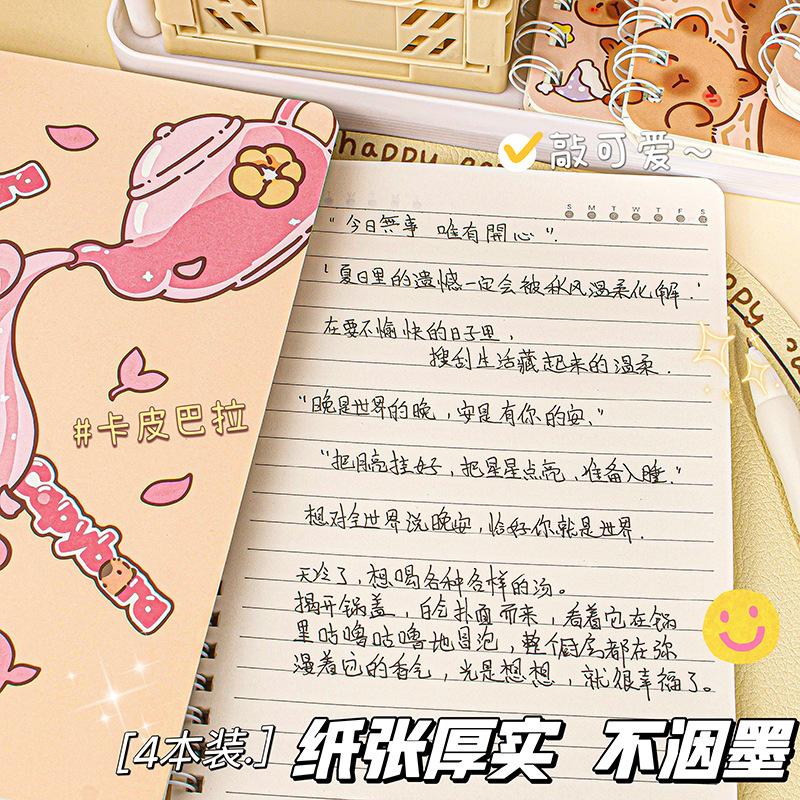 happy
敲可爱~
S M T W T F S
"今日無事 唯有開心".
'夏日里的遗憾一定会被秋风温柔化解.'
在要不愉快的日子里,
搜刮生活藏起来的温柔.
"晚是世界的晚,安是有你的安."
"把月亮挂好,把星星点亮,准备入睡."
想对全世界说晚安,恰好你就是世界.
天冷了,想喝各种各样的汤。
揭开锅盖,白气扑面而来,看着它在锅
里咕噜咕噜地冒泡,整个厨房都在弥
漫着它的香气,光是想想,就很幸福了。
#卡皮巴拉
Capybara
[4本装.] 纸张厚实 不洇墨